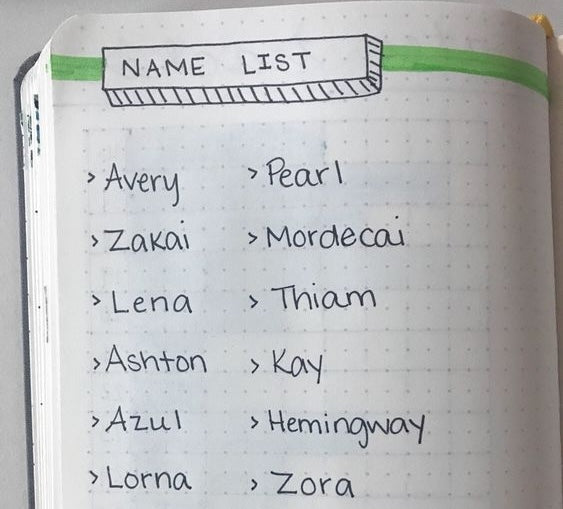 NAME LIST
> Avery
> Zakai
> Lena
> Ashton
> Azul
> Lorna
> Pearl
> Mordecai
> Thiam
> Kay
> Hemingway
> Zora